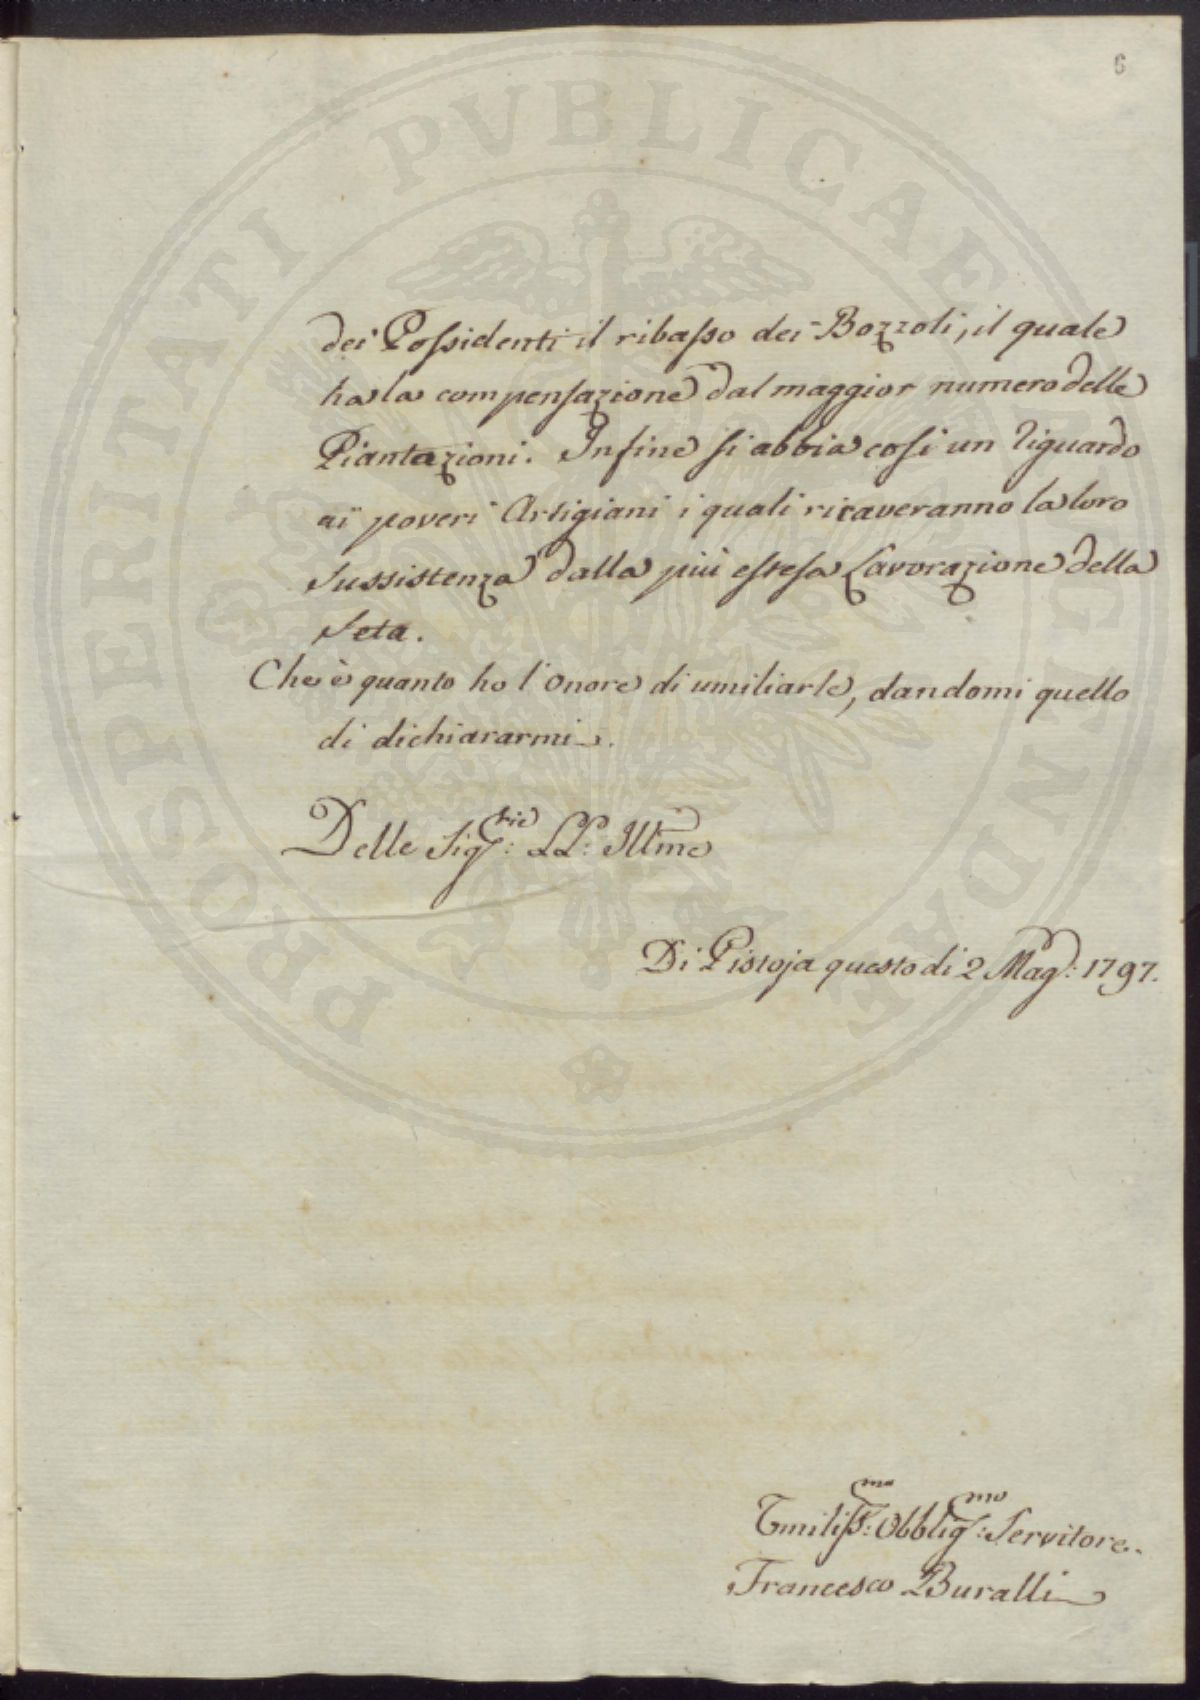 6
dei Possidenti il ribasso dei Bozzoli, il quale
ha la compensazione dal maggior numero delle
Piantazioni. Infine si abbia così un riguardo
ai poveri Artigiani i quali ricaveranno la loro
sussistenza dalla più estesa Lavorazione della
Seta.
Che è quanto ho l'onore di umiliarle, dandomi quello
di dichiararmi
Delle Sig:rie LL: Illme
Di Pistoja questo di 2 Mag: 1797.
Umiliss:mo Obblig:mo Servitore
Francesco Buralli
PROSPERITATI PUBLICAE AUGENDAE